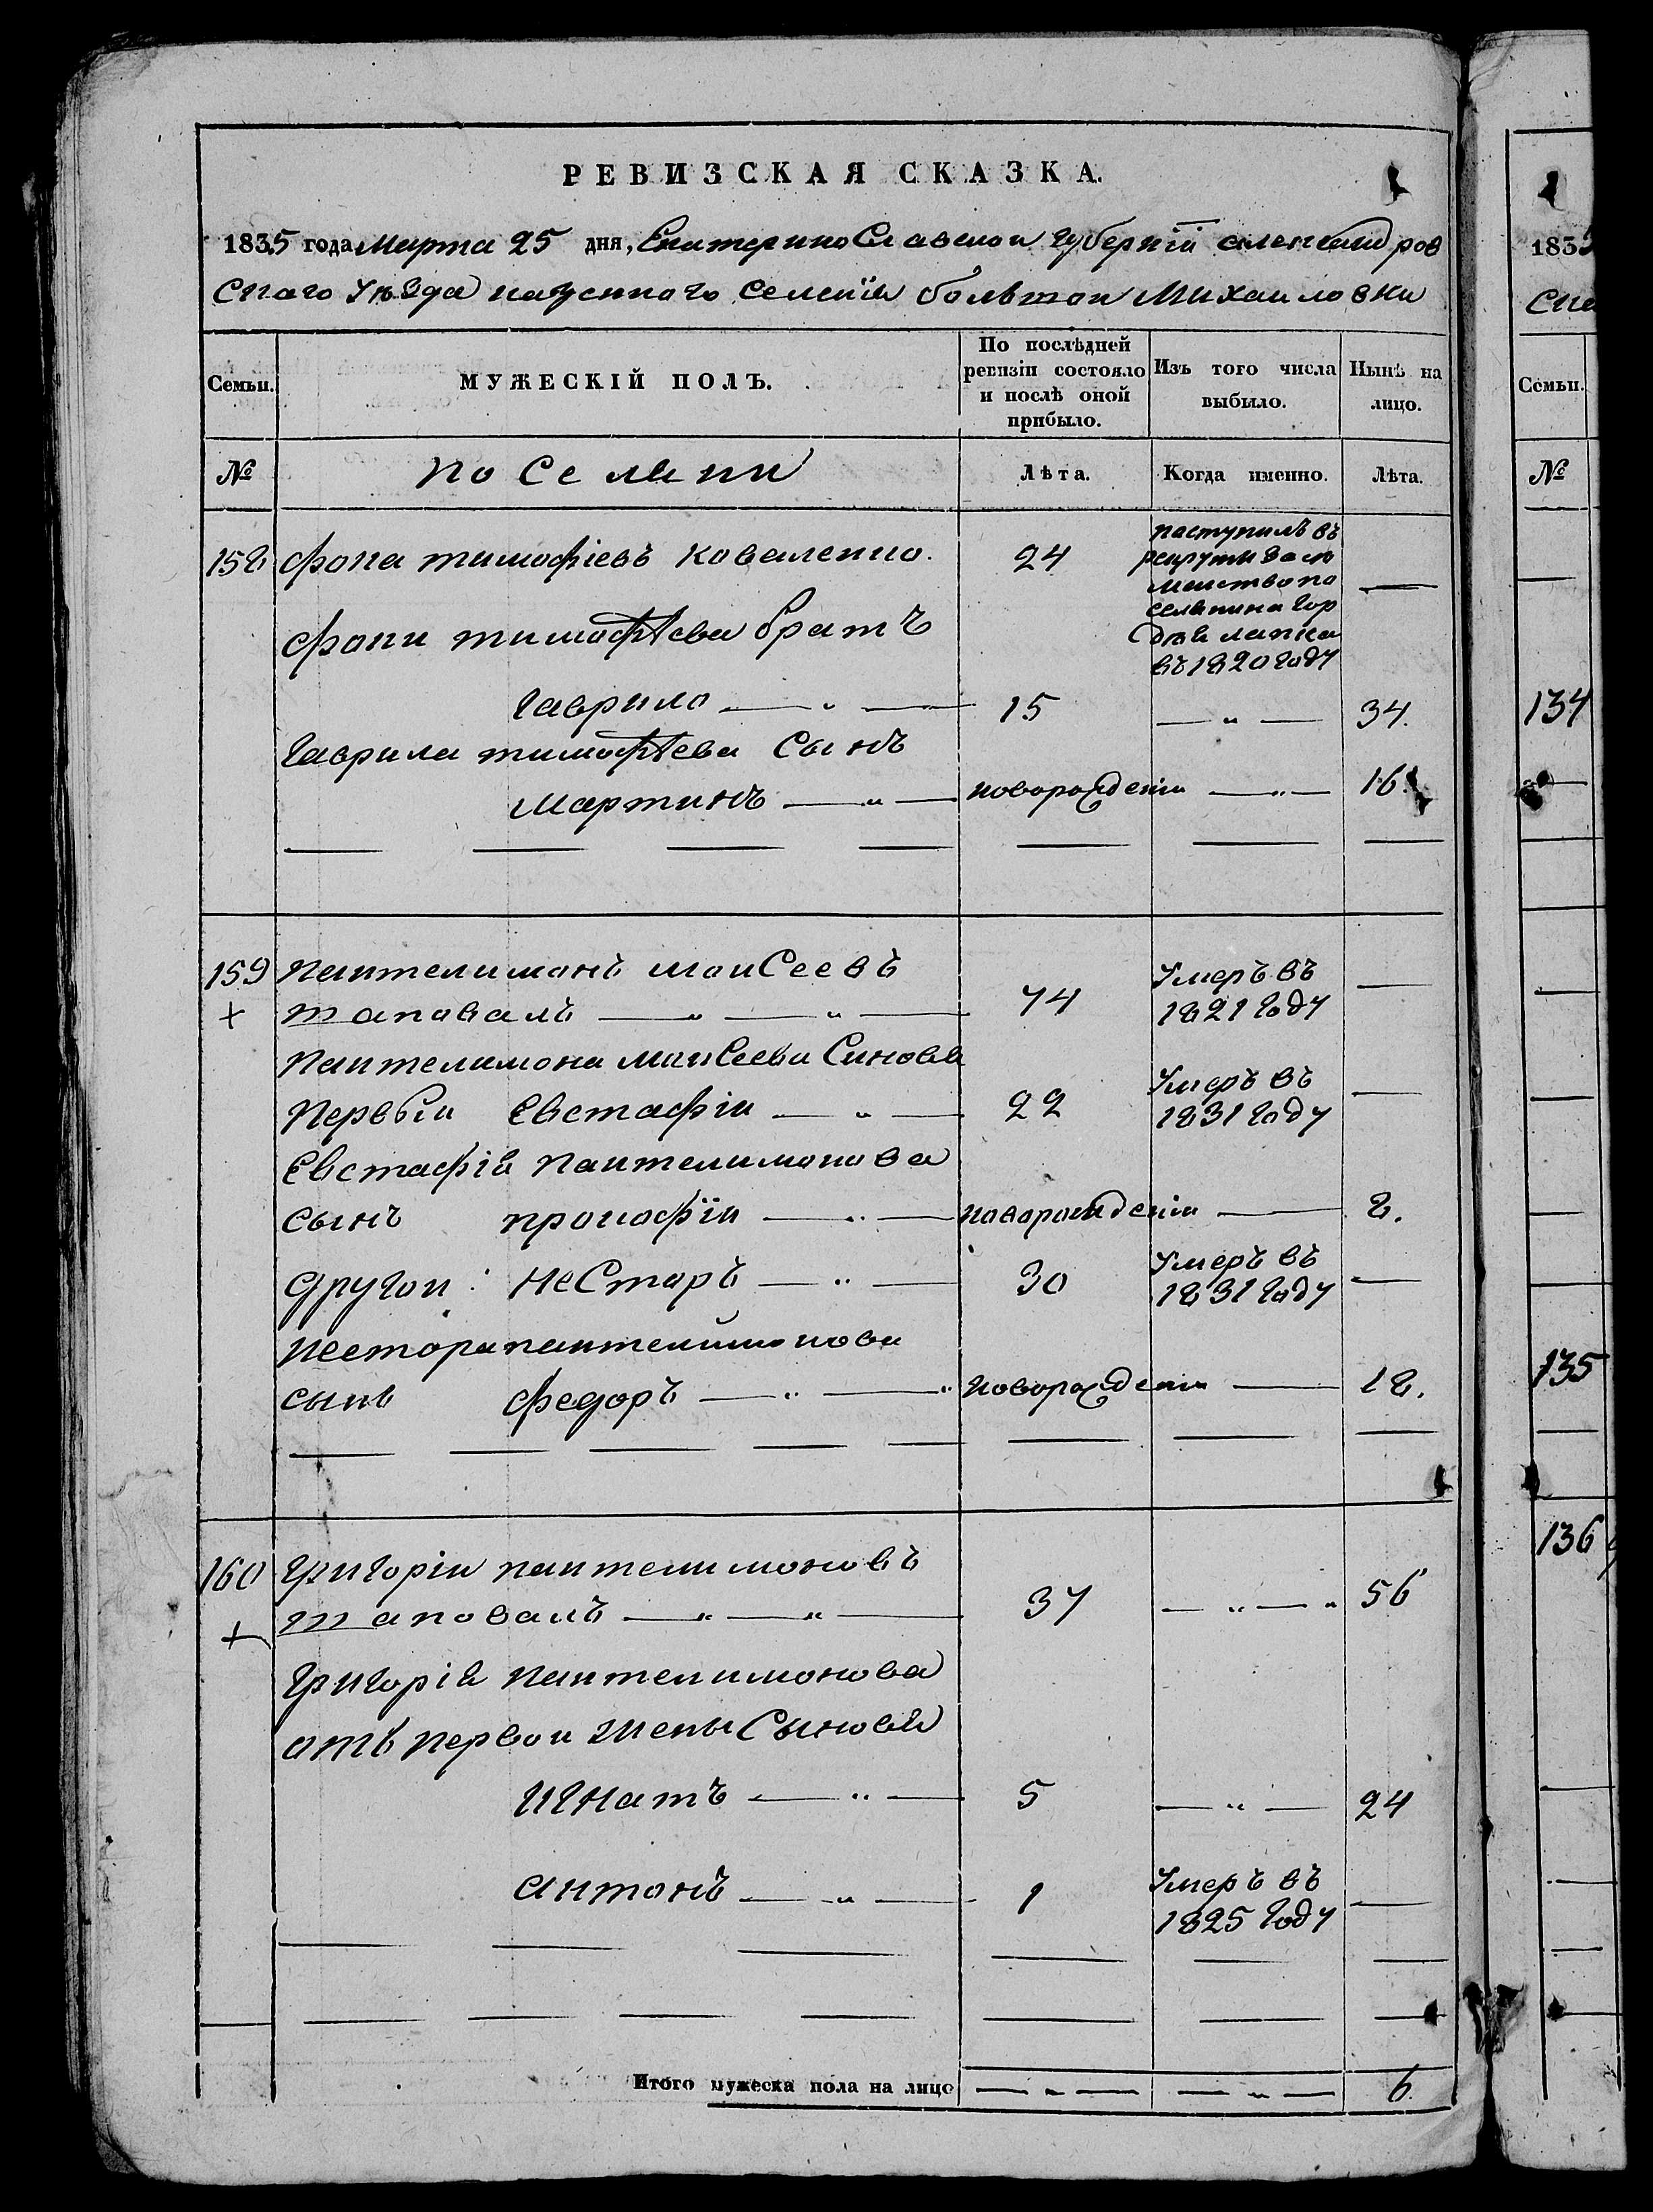 РЕВИЗСКАЯ СКАЗКА.
1835 года Марта 25 дня, Екатерино Славской губерніи александров
скаго уѣзда казенного селенія большой Михаиловки
Семьи.
МУЖЕСКІЙ ПОЛЪ.
По послѣдней ревизіи состояло и послѣ оной прибыло.
Изъ того числа выбыло.
Нынѣ на лицо.
№
поселяни
Лѣта.
Когда именно.
Лѣта.
158 фока тимофіевъ коваленко. 24
поступилъ въ
рекруты
поселянина
въ 1820 году
—
фоки тимофѣева братъ
Гаврило — „ — 15 — „ — 34.
Гаврила тимофѣева Сынъ
Мартинъ — „ — новорожденій — „ — 16.
159 пантелимонъ моисеевъ
+ таповалъ — „ — „ — 74 умеръ въ 1821 году —
пантелимона моисеева Синовья
первый Евстафій — „ — 22 умеръ въ 1831 году —
Евстафія пантелимонова
сынъ прокофій — „ — новорожденій — 8.
другой: Несторъ — „ — 30 умеръ въ 1831 году —
Нестора пантелимонова
сынъ федоръ — „ — „ новорожденій — 18.
160 григорій пантелимоновъ
+ таповалъ — „ — „ — 37 — „ — „ 56
григорія пантелимонова
отъ первой жены Сыновья
игнатъ — „ — 5 — „ — 24
антонъ — „ — 1 умеръ въ 1825 году —
Итого мужеска пола на лицо — „ — — „ — 6.
1835
Ска
Семьи.
№
134
135
136